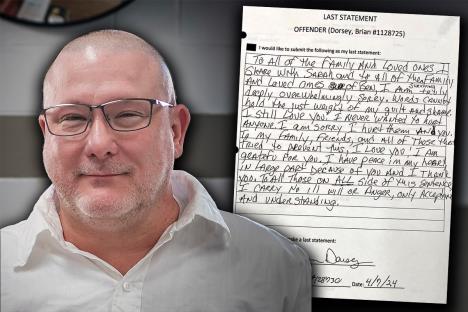 LAST STATEMENT
OFFENDER (Dorsey, Brian #1128725)
I would like to submit the following as my last statement:
To All of the Family And Loved ones I
Share with Sarah and to all of the surviving Family
and Loved ones of Ben, I am truly
deeply overwhelmingly Sorry. Words cannot
hold the just weight of my guilt and shame.
I still Love you. I never wanted to hurt
anyone. I am Sorry I hurt them And you.
To my Family, Friends, and all of Those that
tried to prevent this, I Love you! I am
grateful for you. I have peace in my heart,
in large part because of you And I Thank
you. To all those on ALL side of this Sentence
I carry No ill will or Anger, only Acceptance
And understanding.
ke a last statement:
Dorsey
Date: 4/7/24